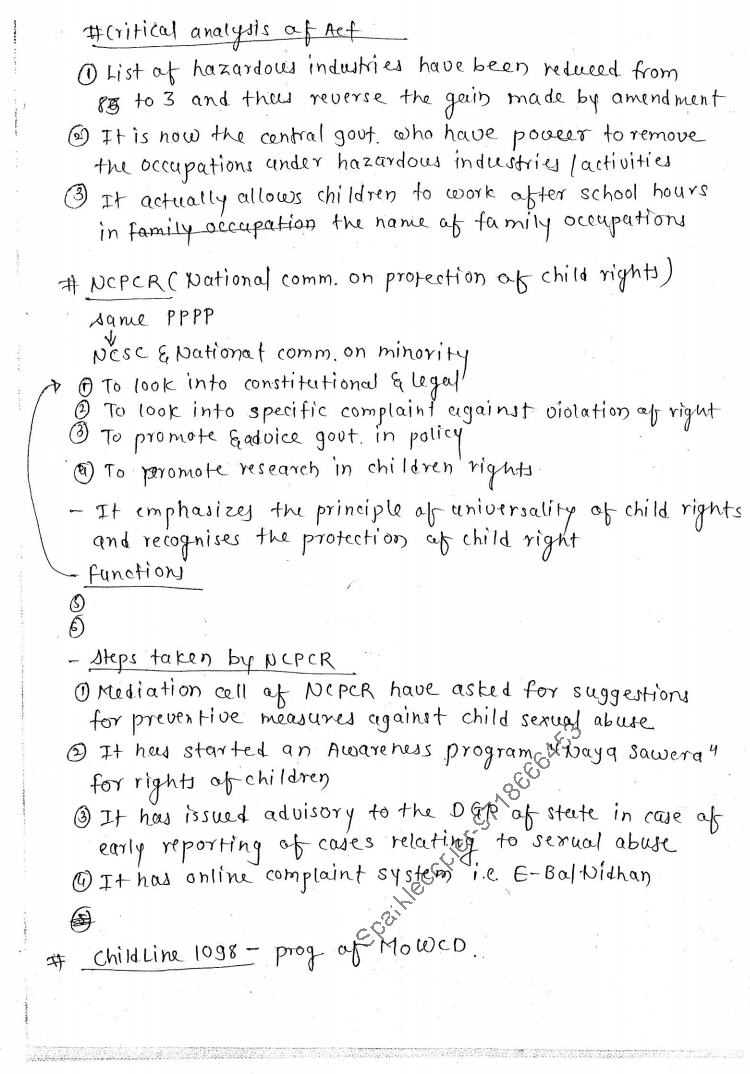 # Critical analysis of Act
① List of hazardous industries have been reduced from
83 to 3 and thus reverse the gain made by amendment
② It is now the central govt. who have power to remove
the occupations under hazardous industries / activities
③ It actually allows children to work after school hours
in family occupation the name of family occupations
# NCPCR (National comm. on protection of child rights)
same PPPP
↓
NCSC & National comm. on minority
① To look into constitutional & legal
② To look into specific complaint against violation of right
③ To promote & advice govt. in policy
④ To promote research in children rights
- It emphasizes the principle of universality of child rights
and recognises the protection of child right
- functions
⑤
⑥
- Steps taken by NCPCR
① Mediation cell of NCPCR have asked for suggestions
for preventive measures against child sexual abuse
② It has started an Awareness program "Naya Sawera"
for rights of children
③ It has issued advisory to the DGP of state in case of
early reporting of cases relating to sexual abuse
④ It has online complaint system i.e. E-Bal Nidhan
⑤
# ChildLine 1098 - prog of MoWCD.